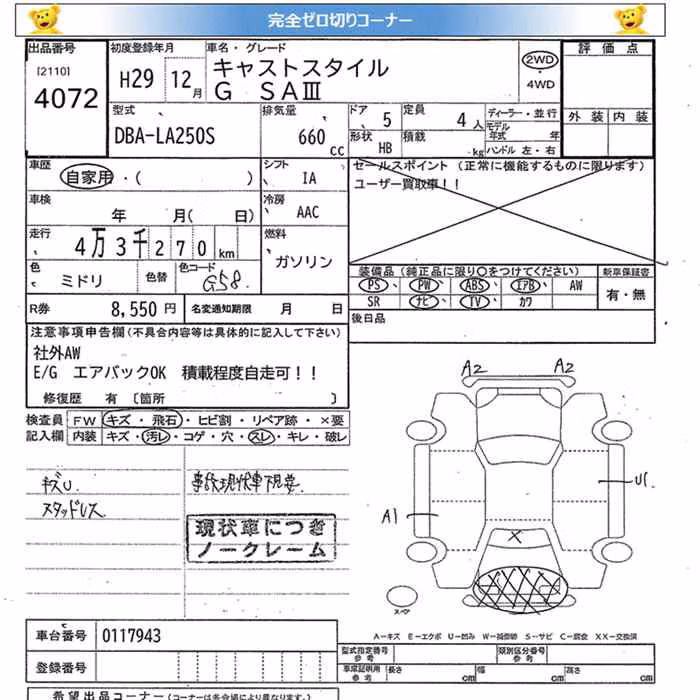 完全ゼロ切りコーナー
出品番号 初度登録年月 車名・グレード 評価点
[2110] 4072 H29 12月 キャストスタイル
G SAⅢ
2WD
4WD
型式 排気量 ドア 定員 ディーラー・並行 外装 内装
DBA-LA250S 660cc 5 4人 モデル年式 年
形状 積載
HB kg ハンドル 左・右
車歴 シフト セールスポイント (正常に機能するものに限ります)
自家用・( ) IA ユーザー買取車!!
車検 冷房
年 月( 日) AAC
走行 燃料
4万3千270km ガソリン
色 色替 色コード 装備品(純正品に限り○をつけてください) 新車保証書
ミドリ G58. PS、 PW、 ABS、 エアB、 AW 有・無
SR ナビ、 TV、 カワ
R券 8,550円 名変通知期限 月 日 後日品
注意事項申告欄(不具合内容等は具体的に記入して下さい)
社外AW
E/G エアバックOK 積載程度自走可!!
修復歴 有 〔箇所 〕
検査員 FW キズ・飛石・ヒビ割・リペア跡・×要
記入欄 内装 キズ・汚レ・コゲ・穴・スレ・キレ・破レ
A2 A2
キズU
スタッドレス
現状車につき
ノークレーム
A1 U1
X
スペア
A-キズ E-エクボ U-凹み W-補修跡 S-サビ C-腐食 XX-交換済
車台番号 0117943
型式指定番号 参考 類別区分番号 参考
登録番号 車庫証明用 参考 長さ cm 幅 cm 高さ cm
希望出品コーナー(コーナーは各会場により異なります。)